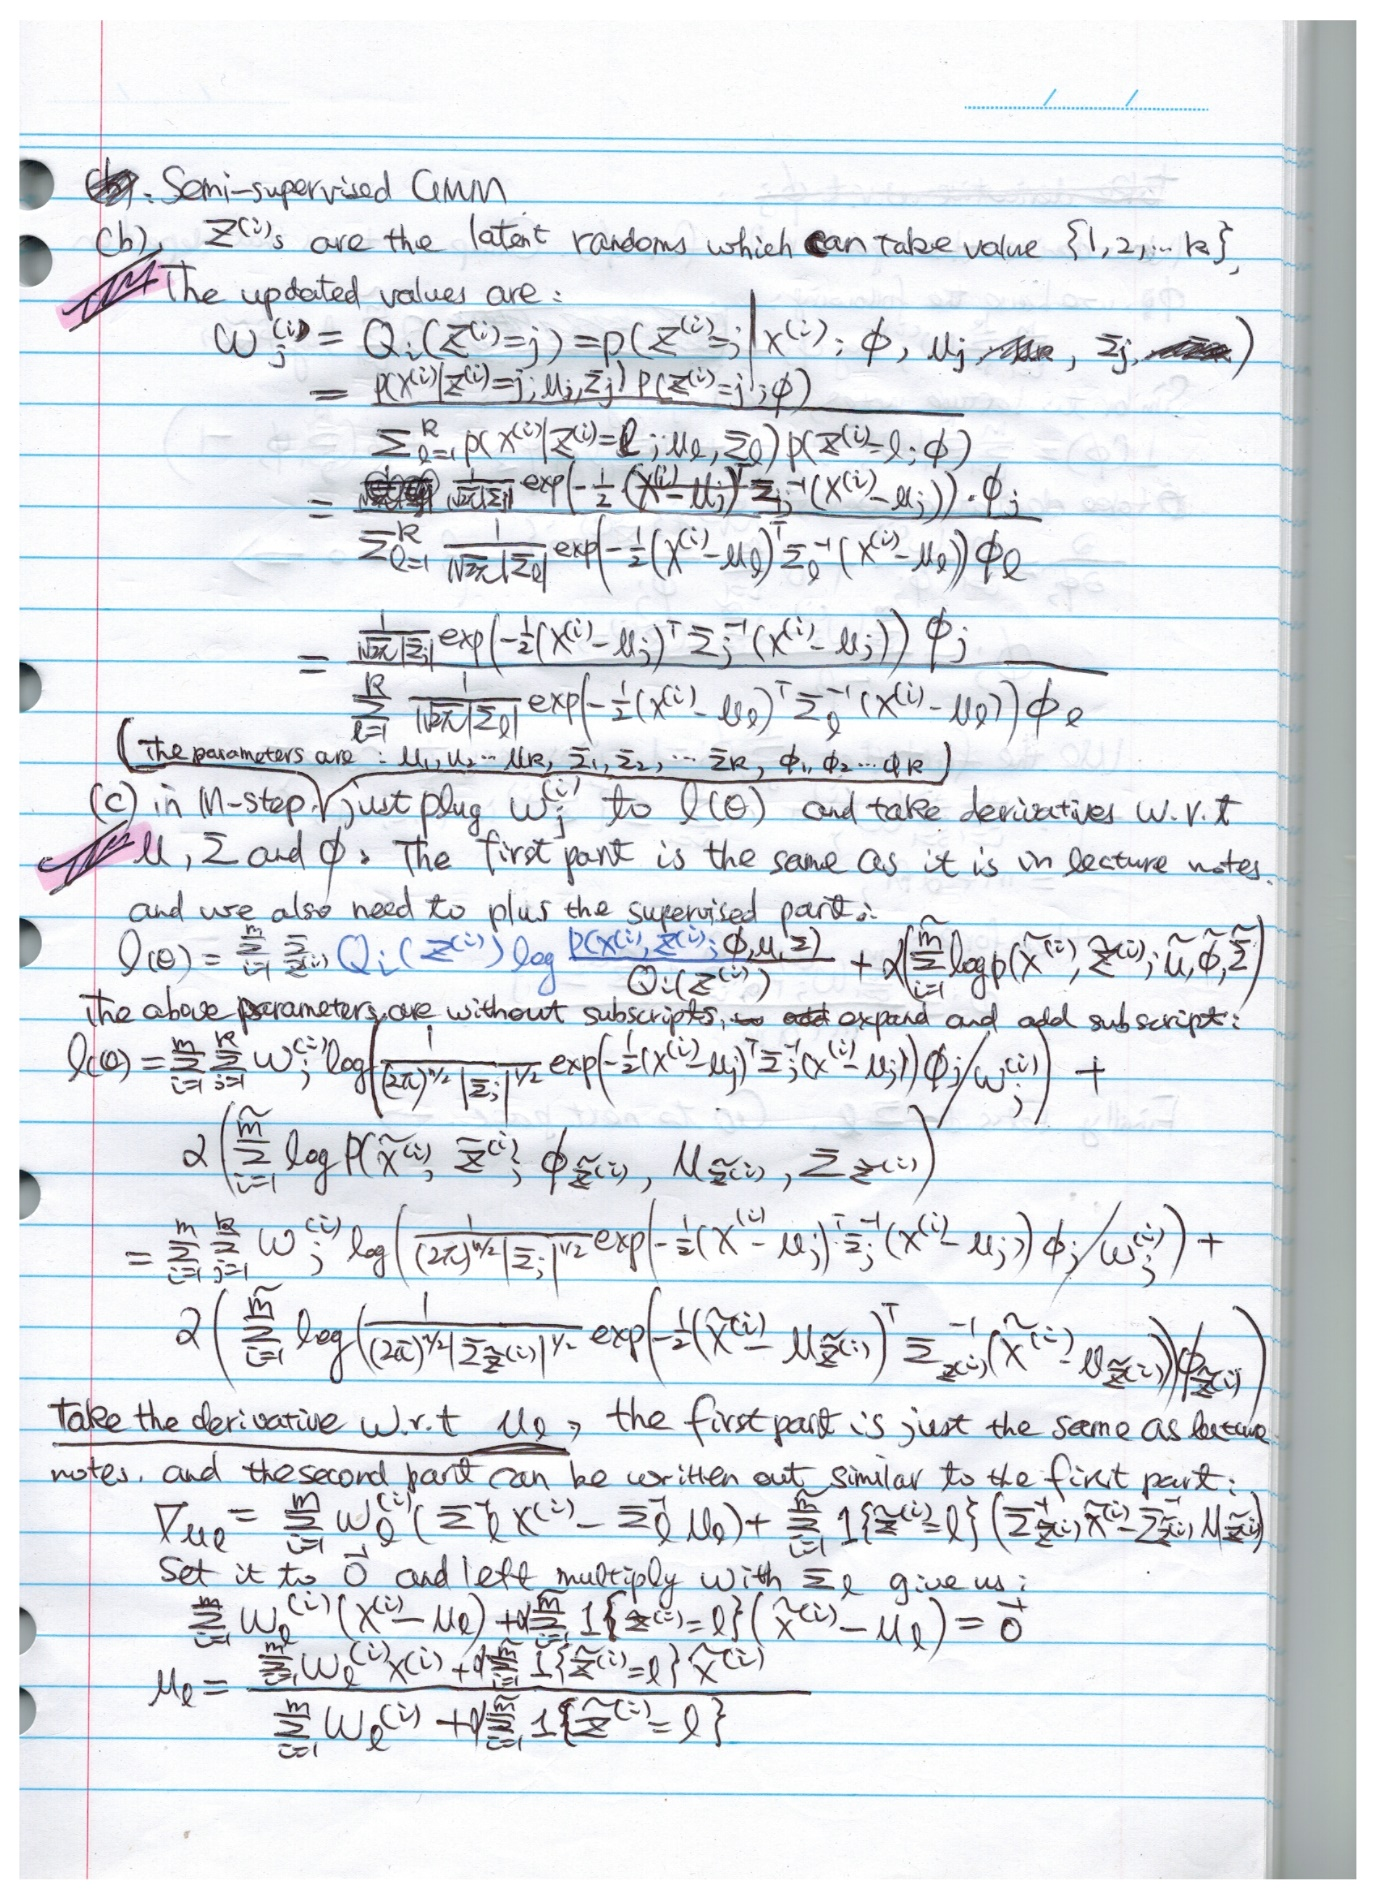 : Semi-supervised GMM
(b), Z⁽ⁱ⁾s are the latent randoms which can take value {1, 2, ... k},
The updated values are:
w_j⁽ⁱ⁾ = Q_i(Z⁽ⁱ⁾=j) = p(Z⁽ⁱ⁾=j | x⁽ⁱ⁾; ϕ, μ_j, Σ_j)
= p(x⁽ⁱ⁾|Z⁽ⁱ⁾=j; μ_j, Σ_j) p(Z⁽ⁱ⁾=j; ϕ)
Σ_{l=1}^k p(x⁽ⁱ⁾|Z⁽ⁱ⁾=l; μ_l, Σ_l) p(Z⁽ⁱ⁾=l; ϕ)
= 1/(√2π|Σ_j|) exp(-½(x⁽ⁱ⁾-μ_j)ᵀ Σ_j⁻¹ (x⁽ⁱ⁾-μ_j)) · ϕ_j
Σ_{l=1}^k 1/(√2π|Σ_l|) exp(-½(x⁽ⁱ⁾-μ_l)ᵀ Σ_l⁻¹ (x⁽ⁱ⁾-μ_l)) ϕ_l
= 1/(√2π|Σ_j|) exp(-½(x⁽ⁱ⁾-μ_j)ᵀ Σ_j⁻¹ (x⁽ⁱ⁾-μ_j)) ϕ_j
Σ_{l=1}^k 1/(√2π|Σ_l|) exp(-½(x⁽ⁱ⁾-μ_l)ᵀ Σ_l⁻¹ (x⁽ⁱ⁾-μ_l)) ϕ_l
(The parameters are: μ₁, μ₂ ... μ_k, Σ₁, Σ₂, ... Σ_k, ϕ₁, ϕ₂ ... ϕ_k)
(c) in M-step, just plug w_j⁽ⁱ⁾ to l(θ) and take derivatives w.r.t
μ, Σ and ϕ. The first part is the same as it is in lecture notes.
and we also need to plus the supervised part:
l(θ) = Σ_{i=1}^m Σ_{z⁽ⁱ⁾} Q_i(Z⁽ⁱ⁾) log p(x⁽ⁱ⁾, z⁽ⁱ⁾; ϕ, μ, Σ) / Q_i(Z⁽ⁱ⁾) + α(Σ_{i=1}^m̃ log p(x̃⁽ⁱ⁾, z̃⁽ⁱ⁾; μ̃, ϕ̃, Σ̃)
The above parameters are without subscripts, expand and add subscript:
l(θ) = Σ_{i=1}^m Σ_{j=1}^k w_j⁽ⁱ⁾ log(1/((2π)^{n/2}|Σ_j|^{1/2}) exp(-½(x⁽ⁱ⁾-μ_j)ᵀ Σ_j⁻¹ (x⁽ⁱ⁾-μ_j)) ϕ_j / w_j⁽ⁱ⁾) +
α(Σ_{i=1}^m̃ log p(x̃⁽ⁱ⁾, z̃⁽ⁱ⁾; ϕ_z̃⁽ⁱ⁾, μ_z̃⁽ⁱ⁾, Σ_z̃⁽ⁱ⁾)
= Σ_{i=1}^m Σ_{j=1}^k w_j⁽ⁱ⁾ log(1/((2π)^{n/2}|Σ_j|^{1/2}) exp(-½(x⁽ⁱ⁾-μ_j)ᵀ Σ_j⁻¹ (x⁽ⁱ⁾-μ_j)) ϕ_j / w_j⁽ⁱ⁾) +
α(Σ_{i=1}^m̃ log(1/((2π)^{n/2}|Σ_z̃⁽ⁱ⁾|^{1/2}) exp(-½(x̃⁽ⁱ⁾-μ_z̃⁽ⁱ⁾)ᵀ Σ_z⁽ⁱ⁾⁻¹ (x̃⁽ⁱ⁾-μ_z̃⁽ⁱ⁾)) ϕ_z̃⁽ⁱ⁾)
Take the derivative w.r.t μ_l, the first part is just the same as lecture
notes. and the second part can be written out similar to the first part:
∇μ_l = Σ_{i=1}^m w_l⁽ⁱ⁾ (Σ_l⁻¹ x⁽ⁱ⁾ - Σ_l⁻¹ μ_l) + Σ_{i=1}^m̃ 1{z̃⁽ⁱ⁾=l} (Σ_z̃⁽ⁱ⁾⁻¹ x̃⁽ⁱ⁾ - Σ_z̃⁽ⁱ⁾⁻¹ μ_z̃⁽ⁱ⁾)
Set it to 0⃗ and left multiply with Σ_l give us:
Σ_{i=1}^m w_l⁽ⁱ⁾ (x⁽ⁱ⁾-μ_l) + α Σ_{i=1}^m̃ 1{z̃⁽ⁱ⁾=l} (x̃⁽ⁱ⁾-μ_l) = 0⃗
μ_l = Σ_{i=1}^m w_l⁽ⁱ⁾ x⁽ⁱ⁾ + α Σ_{i=1}^m̃ 1{z̃⁽ⁱ⁾=l} x̃⁽ⁱ⁾
Σ_{i=1}^m w_l⁽ⁱ⁾ + α Σ_{i=1}^m̃ 1{z̃⁽ⁱ⁾=l}